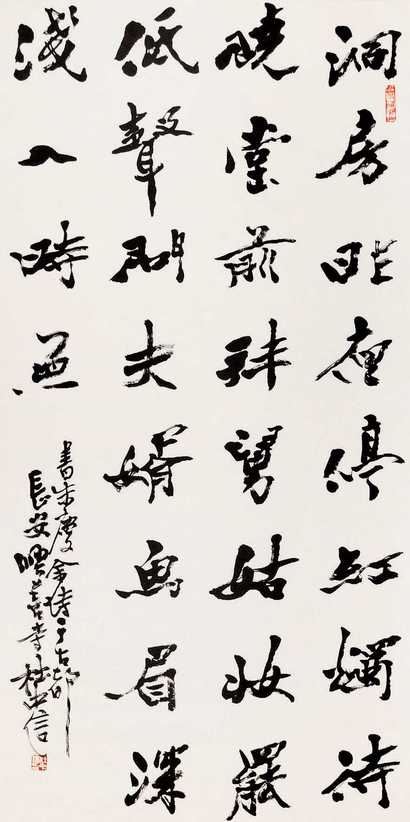 洞房昨夜停紅燭待
曉堂前拜舅姑妝罷
低聲問夫婿畫眉深
淺入時無
書朱慶余詩于古都
長安杜中信